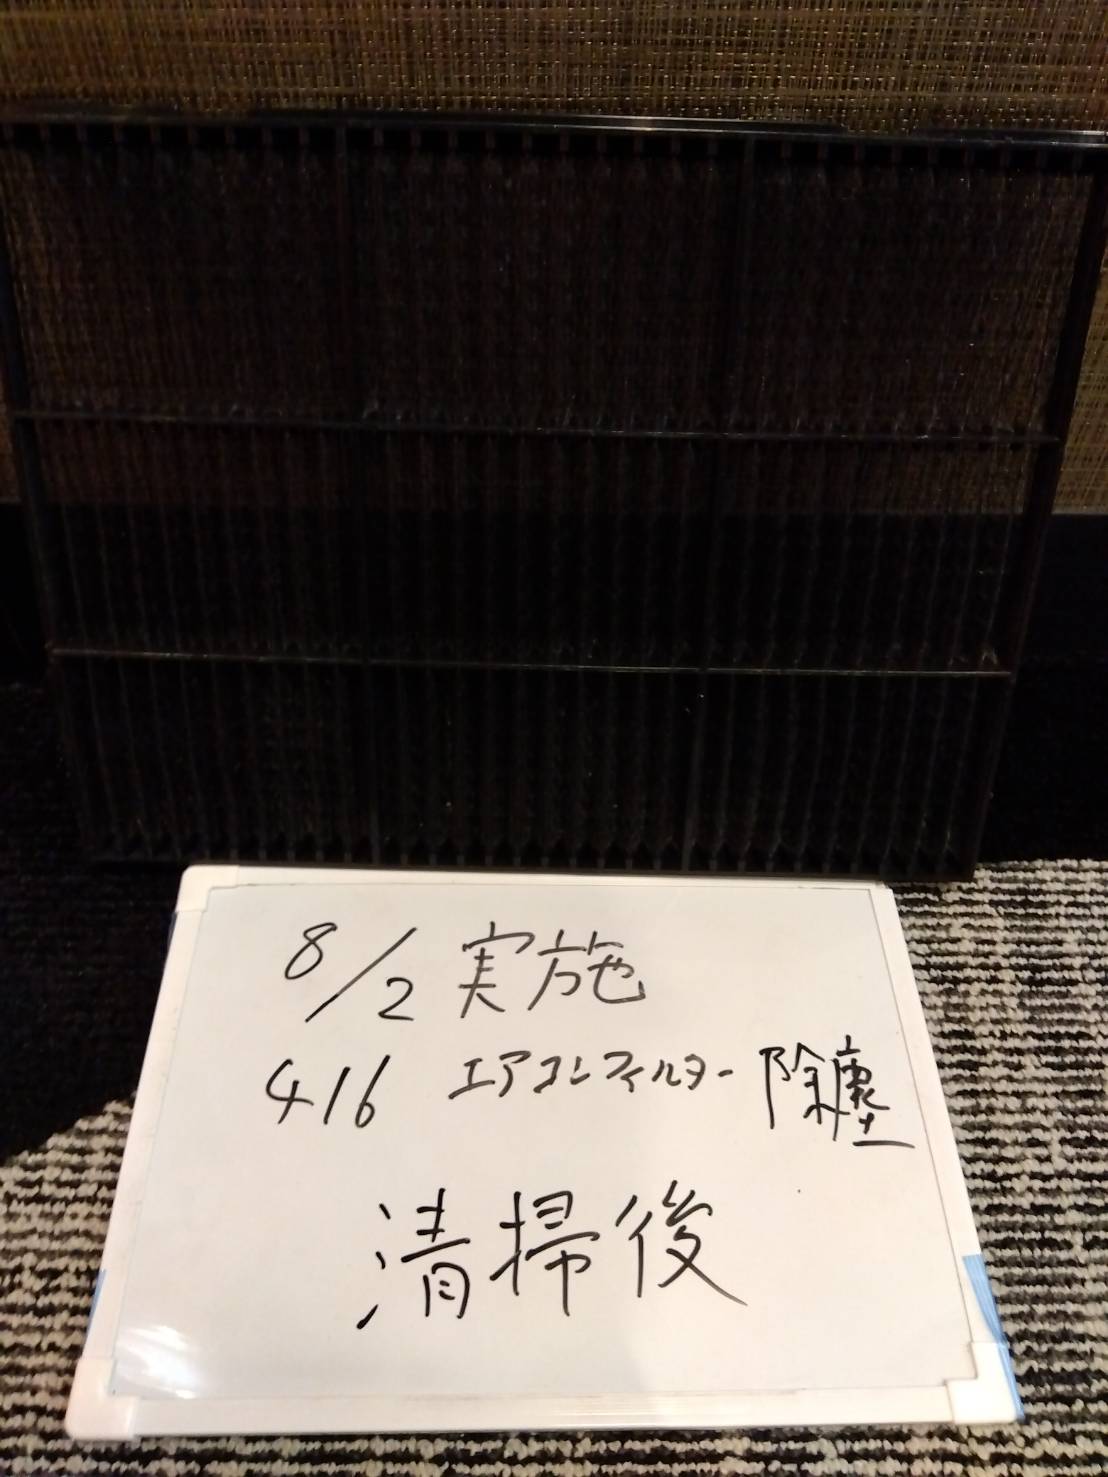 8/2 実施
416 エアコンフィルター 除塵
清掃後